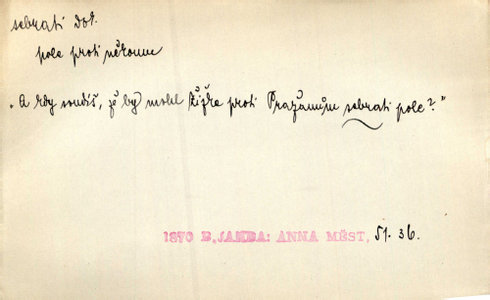 sebrati dok.
pole proti někomu
„A kdy soudíš, že by mohl Žižka proti Pražanům sebrati pole?"
1870 B. JANDA: ANNA MĚST, 51. 36.